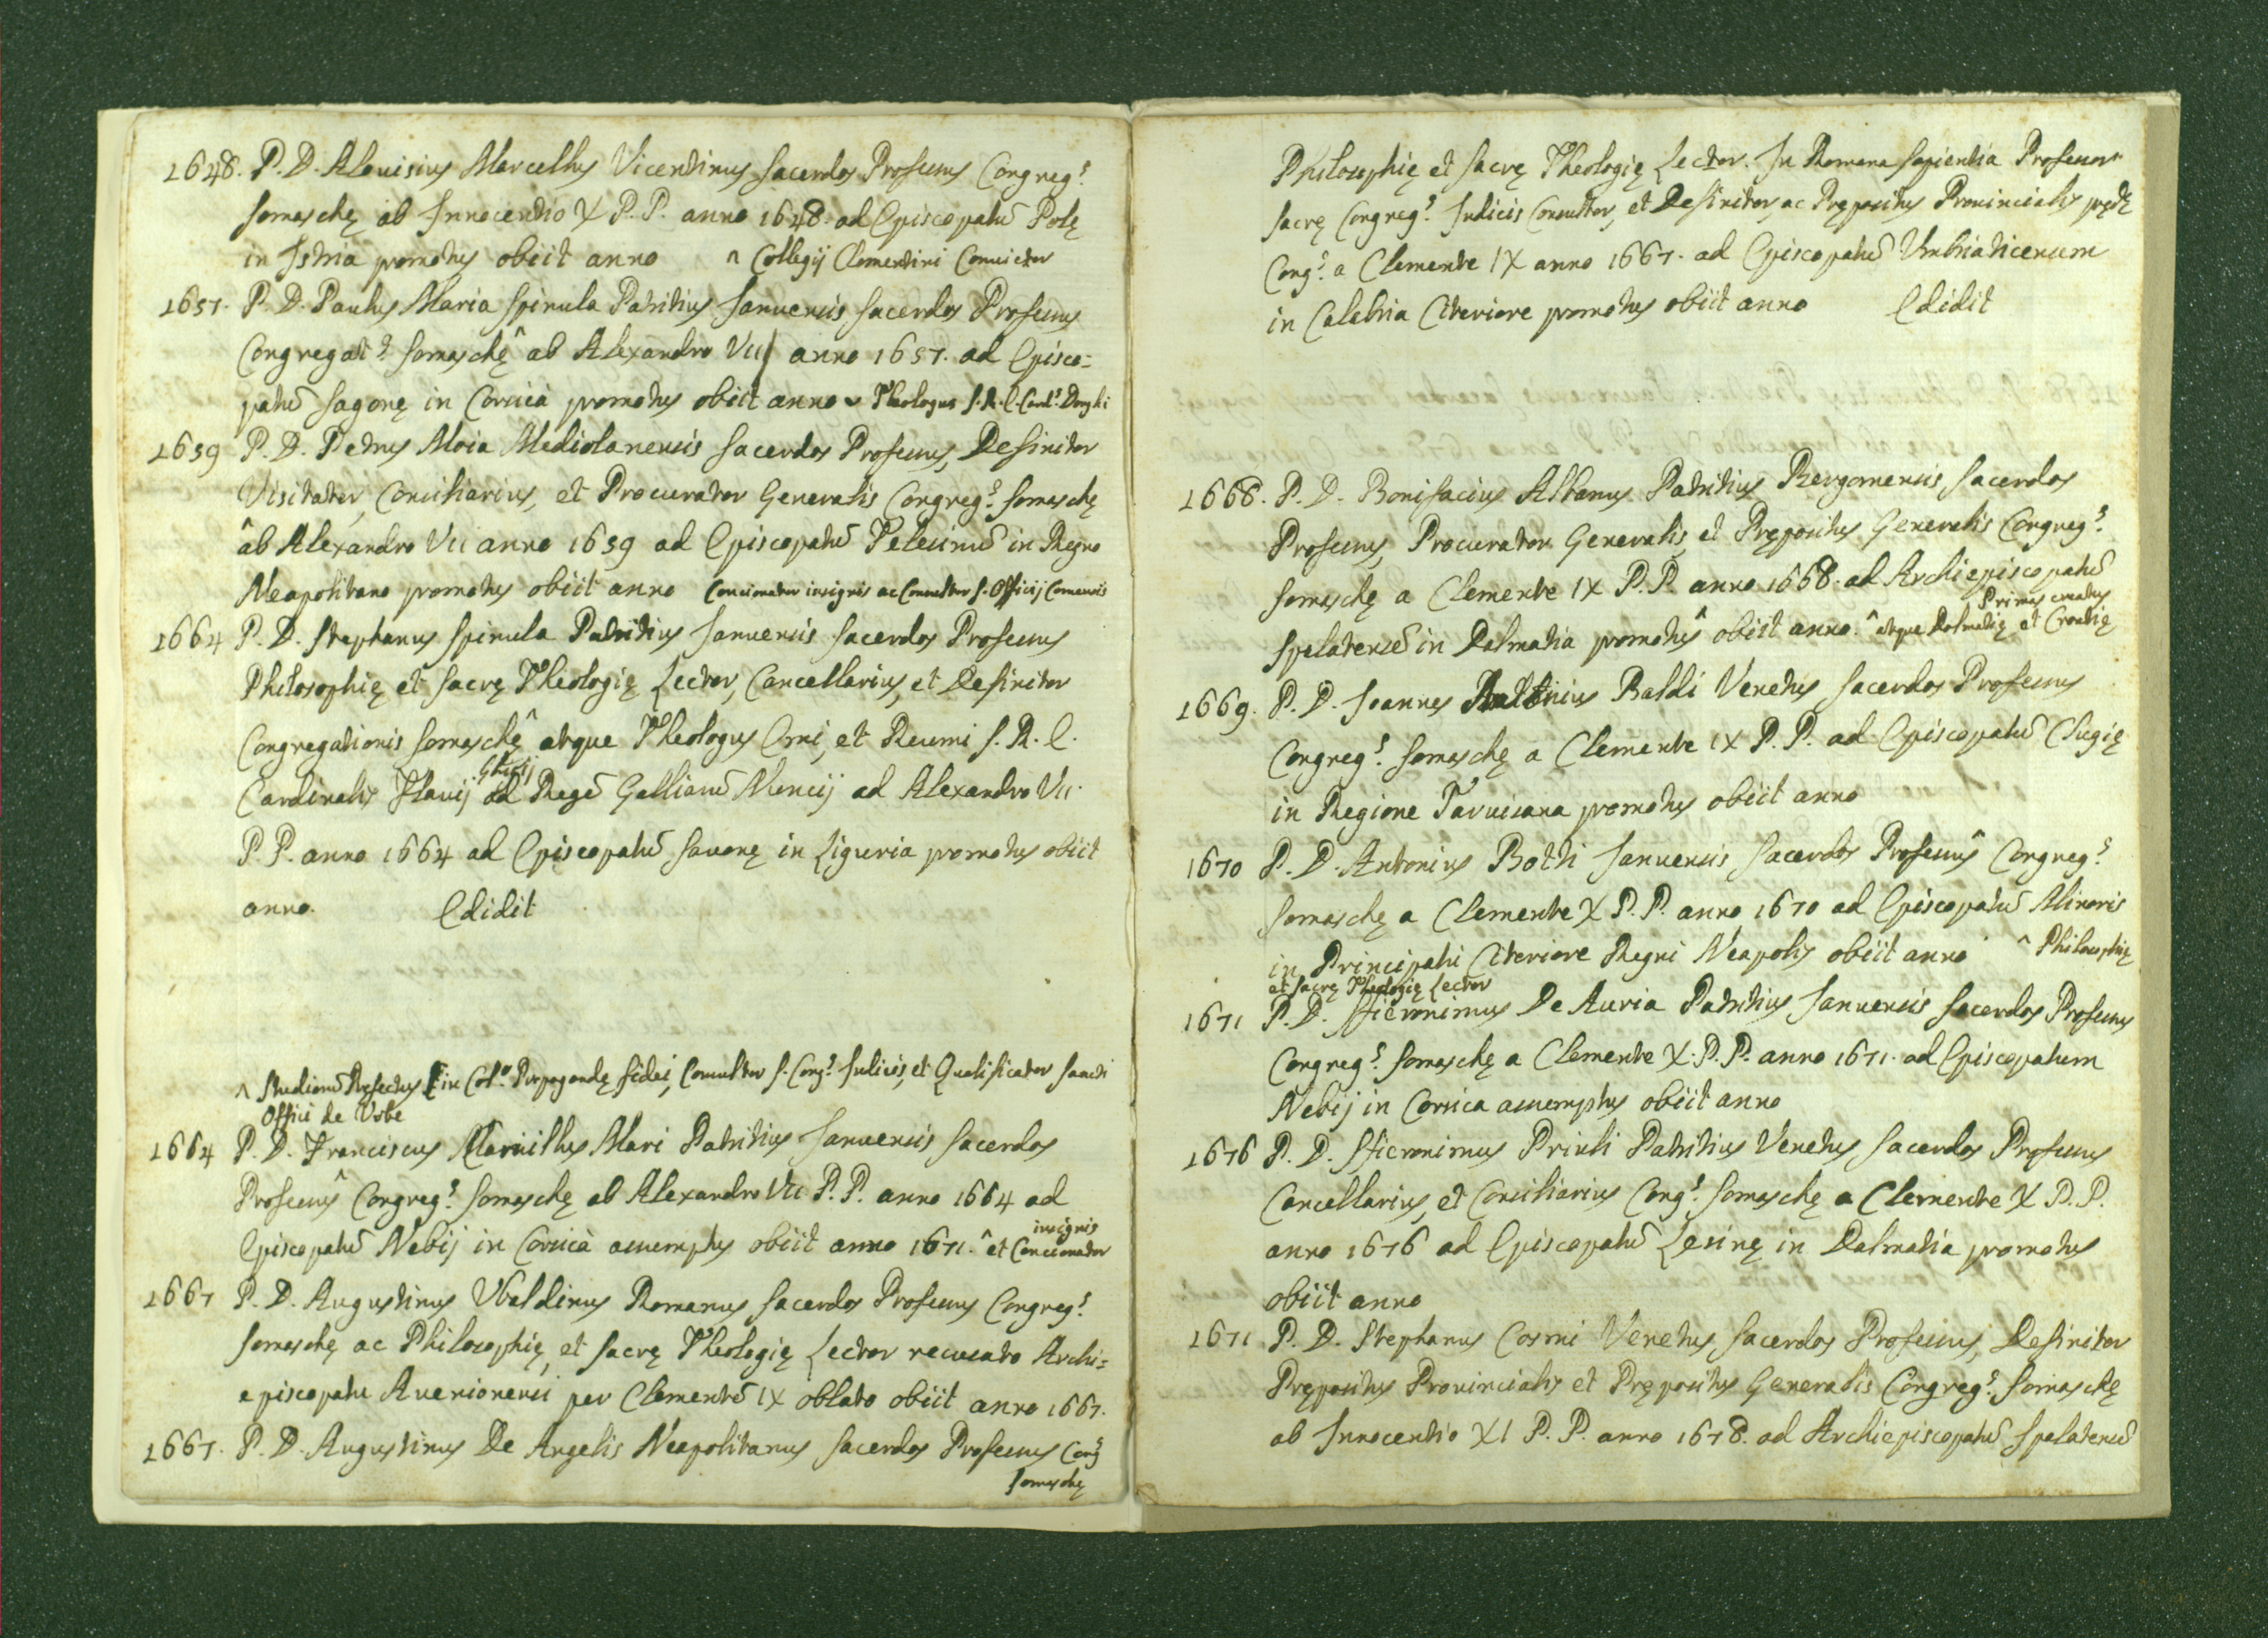 1648. P. D. Alouisius Marcellus Vicentinus Sacerdos Professus Congreg.s
Somaschę ab Innocentio X P. P. anno 1648. ad Episcopatū Polę
in Istria promotus obiit anno ^ Collegij Clementini Convictor
1657. P. D. Paulus Maria Spinula Patritius Januensis Sacerdos Professus
Congregat.s Somaschę^ ab Alexandro VII anno 1657. ad Episco=
patū Sagonę in Corsica promotus obiit anno Theologus S. R. E. Card.s Donghi
1659 P. D. Petrus Moia Mediolanensis Sacerdos Professus, Definitor
Visitator, Consiliarius, et Procurator Generalis Congreg.s Somaschę
^ab Alexandro VII anno 1659 ad Episcopatū Telesinū in Regno
Neapolitano promotus obiit anno Concionator insignis ac Consultor S. Officij Comensis
1664 P. D. Stephanus Spinula Patritius Januensis Sacerdos Professus
Philosophię et Sacrę Theologię Lector, Cancellarius, et Definitor
Congregationis Somaschę^ atque Theologus Emi, et Reumi S. R. E.
Ghisij
Cardinalis Flavij ad Regē Galliarū Nuncij ad Alexandro VII.
P. P. anno 1664 ad Episcopatū Savonę in Liguria promotus obiit
anno. Edidit
^ Studiorū Pręfectus in Col.o Propagandę Fidei, Consultor S. Cong.s Indicis, et Qualificator Sancti
Offici de Urbe
1664 P. D. Franciscus Mari Patritius Januensis Sacerdos
Professus^ Congreg.s Somaschę ab Alexandro VII P. P. anno 1664 ad
insignis
Episcopatū Nebij in Corsica assumptus obiit anno 1671. ^ et Concionator
1667 P. D. Augustinus Ubaldinus Romanus Sacerdos Professus Congreg.s
Somaschę ac Philosophię, et Sacrę Theologię Lector recusato Archi=
episcopatu Avenionensi per Clementē IX oblato obiit anno 1667.
1667. P. D. Augustinus De Angelis Neapolitanus Sacerdos Professus Cong.s
Somaschę
Philosophię et Sacrę Theologię Lector. In Romana Sapientia Professor
Sacrę Congreg.s Indicis Consultor, et Definitor, ac Prępositus Provincialis prędę
Cong.s a Clemente IX anno 1667. ad Episcopatū Umbriaticensem
in Calabria Citeriore promotus obiit anno Edidit
1668. P. D. Bonifacius Albanus Patritius Bergomensis Sacerdos
Professus, Procurator Generalis, et Prępositus Generalis Congreg.s
Somaschę a Clemente IX P. P. anno 1668. ad Archiepiscopatū
Primas creatus
Spalatensē in Dalmatia promotus^ obiit anno. ^ atque Dalmatię et Croatię
1669. P. D. Joannes Antonius Baldi Venetus Sacerdos Professus
Congreg.s Somaschę a Clemente IX P. P. ad Episcopatū Clugię
in Regione Tarvisana promotus obiit anno
1670 P. D. Antonius Botti Januensis Sacerdos Professus^ Congreg.s
Somaschę a Clemente X P. P. anno 1670 ad Episcopatū Minoris
in Principatu Citeriore Regni Neapolis obiit anno ^ Philosophię
et Sacrę Theologię Lector
1671 P. D. Hieronimus De Auria Patritius Januensis Sacerdos Professus
Congreg.s Somaschę a Clemente X. P. P. anno 1671. ad Episcopatum
Nebij in Corsica assumptus obiit anno
1676 P. D. Hieronimus Priuli Patritius Venetus Sacerdos Professus
Cancellarius, et Consiliarius Cong.s Somaschę a Clemente X P. P.
anno 1676 ad Episcopatū Lesinę in Dalmatia promotus
obiit anno
1671 P. D. Stephanus Cosmi Venetus, Sacerdos Professus, Definitor
Prępositus Provincialis et Prępositus Generalis Congreg.s Somaschę
ab Innocentio XI P. P. anno 1678. ad Archiepiscopatū Spalatensē